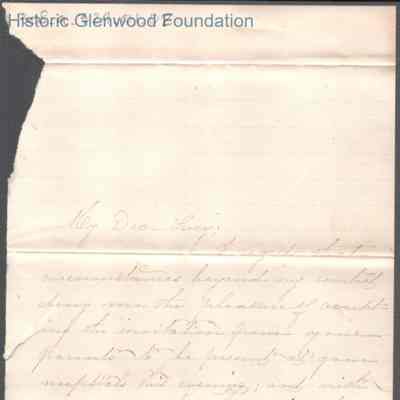 Historic Glenwood Foundation
My Dear
I regret that
circumstances beyond my control
deny me the pleasure of accept-
ing the invitation from your
parents to be present at your
nuptials this evening; and with